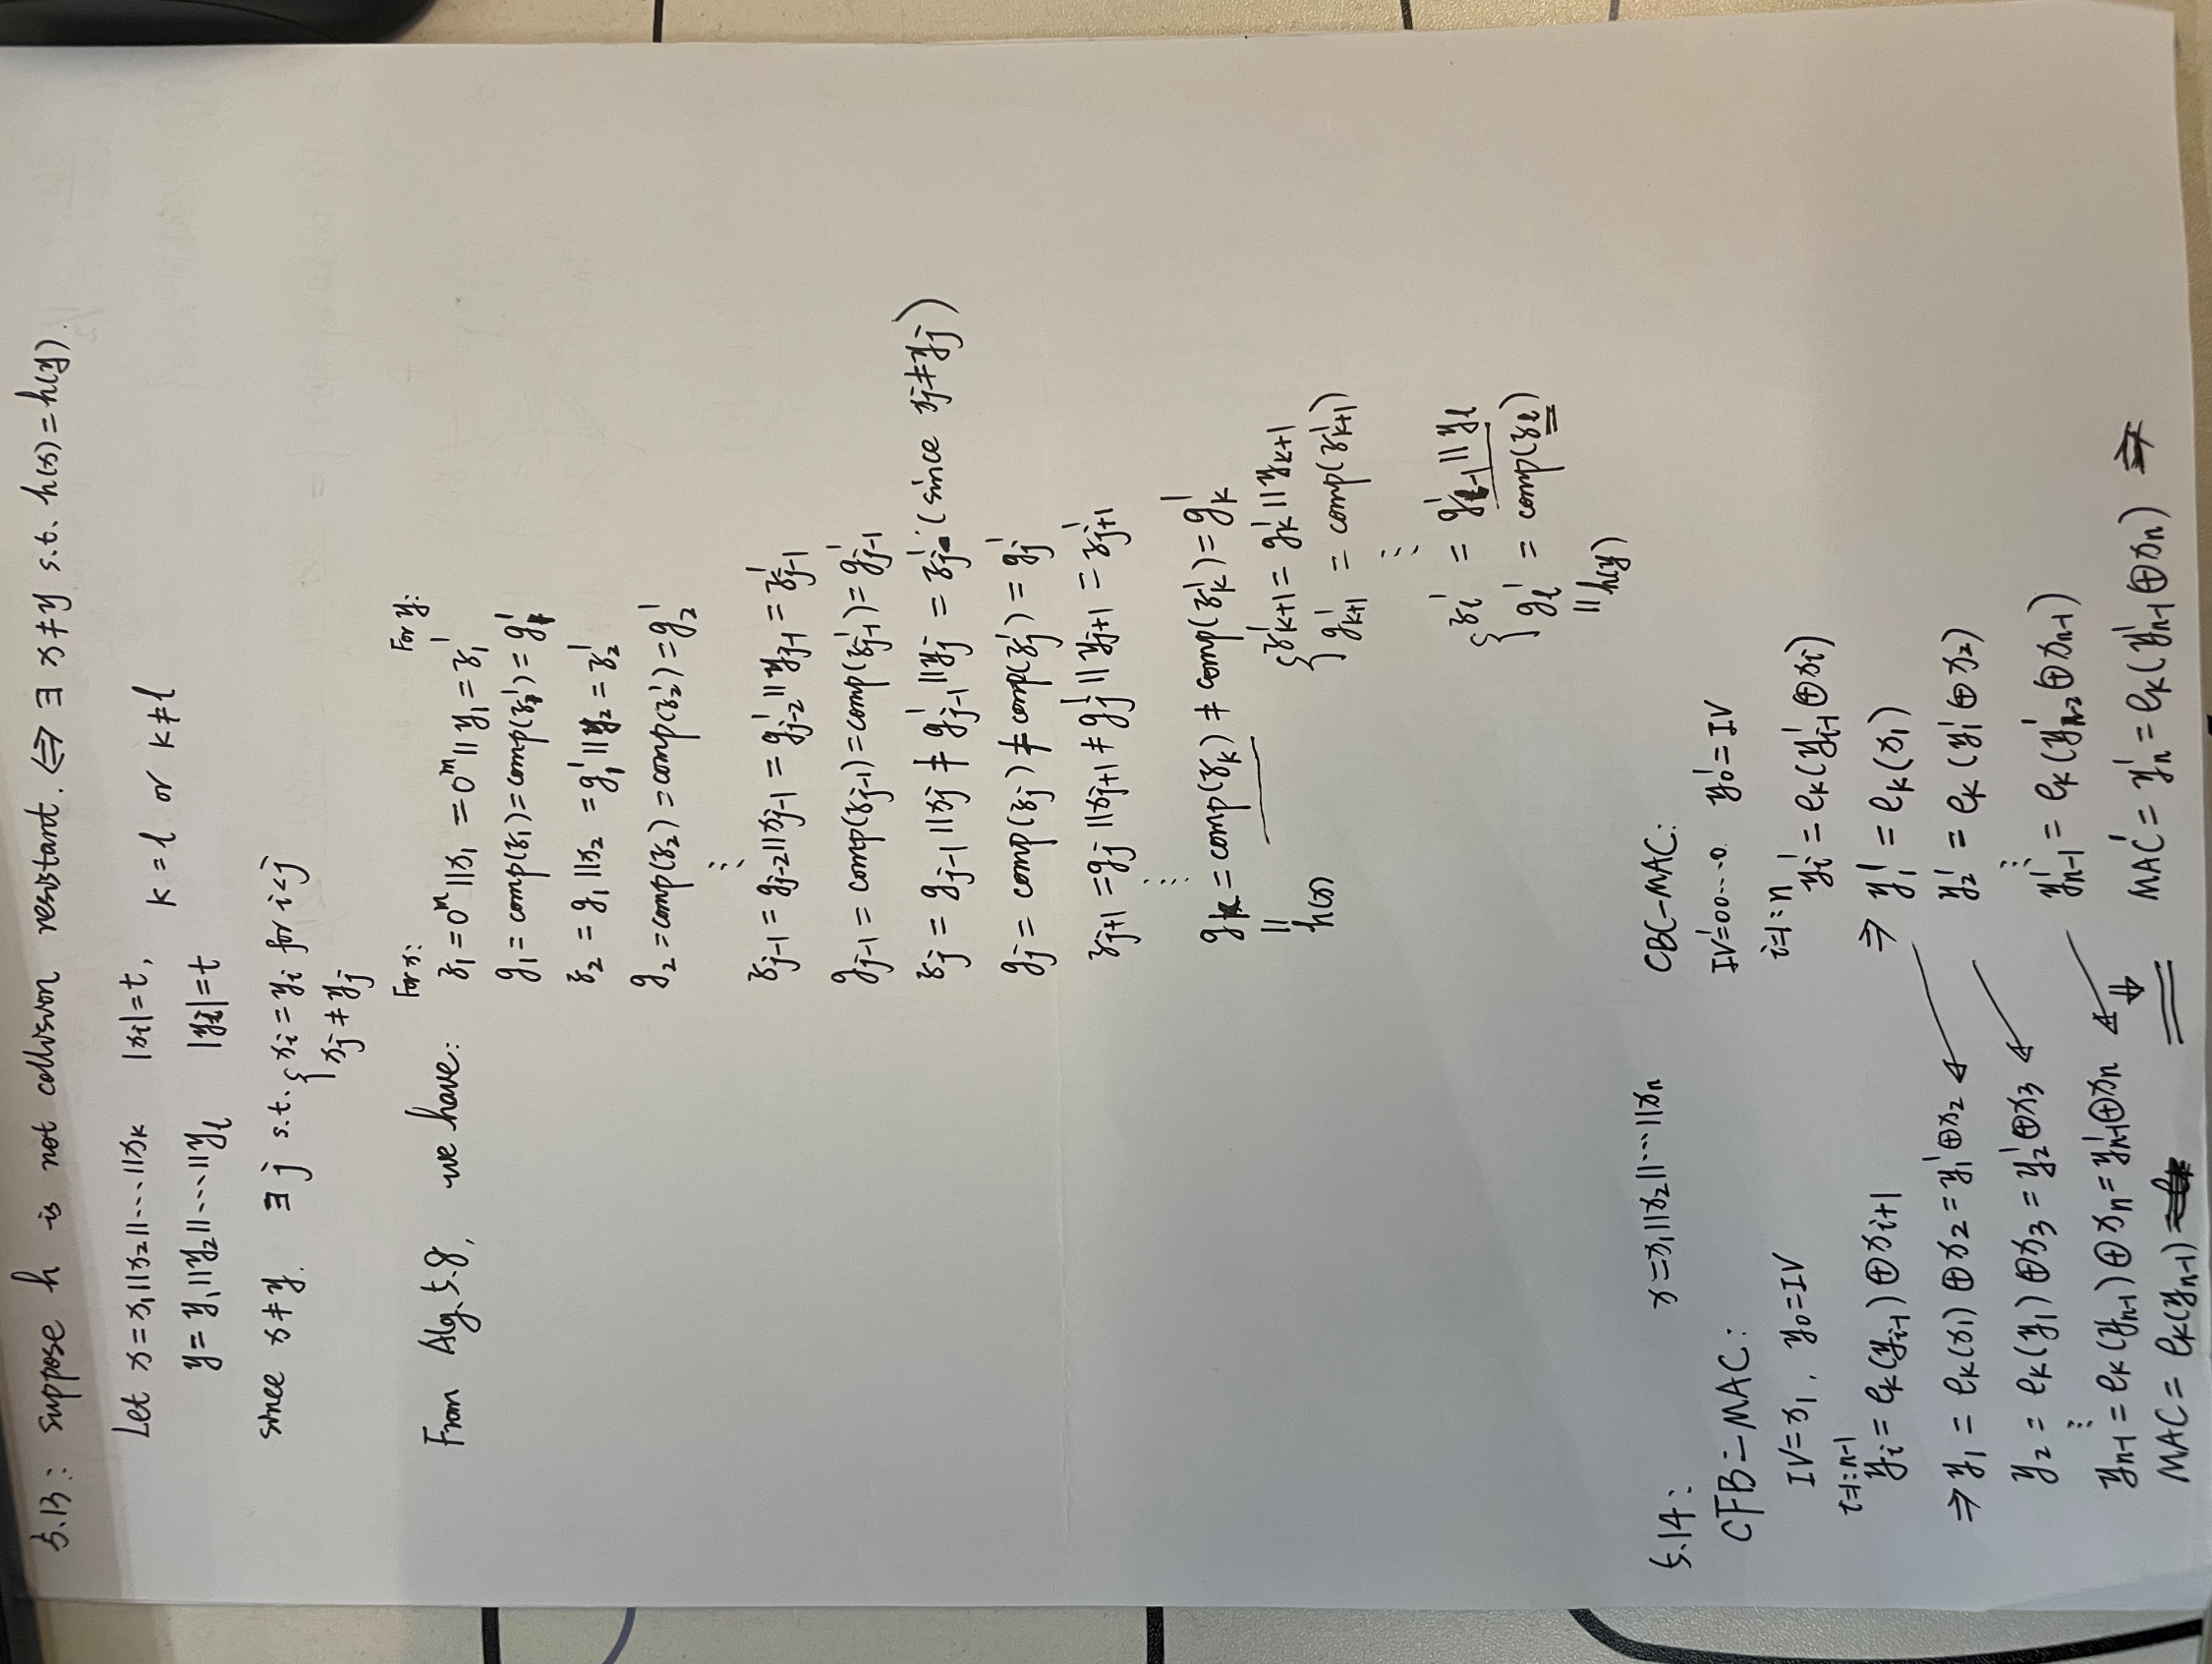 5.13: suppose h is not collision resistant. ⟺ ∃ x≠y s.t. h(x)=h(y).
Let x=x₁||x₂||···||xₖ |xᵢ|=t, k=l or k≠l
y=y₁||y₂||···||yₗ |yᵢ|=t
since x≠y. ∃ j s.t. { xᵢ=yᵢ for i<j
xⱼ≠yⱼ
From Alg.5.8, we have: For x: For y:
z₁=0ᵐ||x₁ = 0ᵐ||y₁=z₁'
g₁=comp(z₁)=comp(z₁')=g₁'
z₂=g₁||x₂=g₁'||y₂=z₂'
g₂=comp(z₂)=comp(z₂')=g₂'
⋮
zⱼ₋₁=gⱼ₋₂||xⱼ₋₁=gⱼ₋₂'||yⱼ₋₁=zⱼ₋₁'
gⱼ₋₁=comp(zⱼ₋₁)=comp(zⱼ₋₁')=gⱼ₋₁'
zⱼ=gⱼ₋₁||xⱼ≠gⱼ₋₁'||yⱼ=zⱼ' (since xⱼ≠yⱼ)
gⱼ=comp(zⱼ)≠comp(zⱼ')=gⱼ'
zⱼ₊₁=gⱼ||xⱼ₊₁≠gⱼ'||yⱼ₊₁=zⱼ₊₁'
⋮
gₖ=comp(zₖ)≠comp(zₖ')=gₖ'
||
h(x)
{ zₖ₊₁'=gₖ'||yₖ₊₁
gₖ₊₁'=comp(zₖ₊₁')
⋮
{ zₗ'=gₗ₋₁'||yₗ
gₗ'=comp(zₗ)
||
h(y)
5.14: x=x₁||x₂||···||xₙ
CFB-MAC:
IV=x₁, y₀=IV
i=1:n-1
yᵢ=eₖ(yᵢ₋₁)⊕xᵢ₊₁
⇒ y₁=eₖ(x₁)⊕x₂=y₁'⊕x₂
y₂=eₖ(y₁)⊕x₃=y₂'⊕x₃
⋮
yₙ₋₁=eₖ(yₙ₋₁)⊕xₙ=yₙ₋₁'⊕xₙ
MAC=eₖ(yₙ₋₁)
CBC-MAC:
IV'=00···0 y₀'=IV
i=1:n
yᵢ'=eₖ(yᵢ₋₁'⊕xᵢ)
⇒ y₁'=eₖ(x₁)
y₂'=eₖ(y₁'⊕x₂)
⋮
yₙ₋₁'=eₖ(yₙ₋₂'⊕xₙ₋₁)
⇓
= MAC'=yₙ'=eₖ(yₙ₋₁'⊕xₙ) ⇒